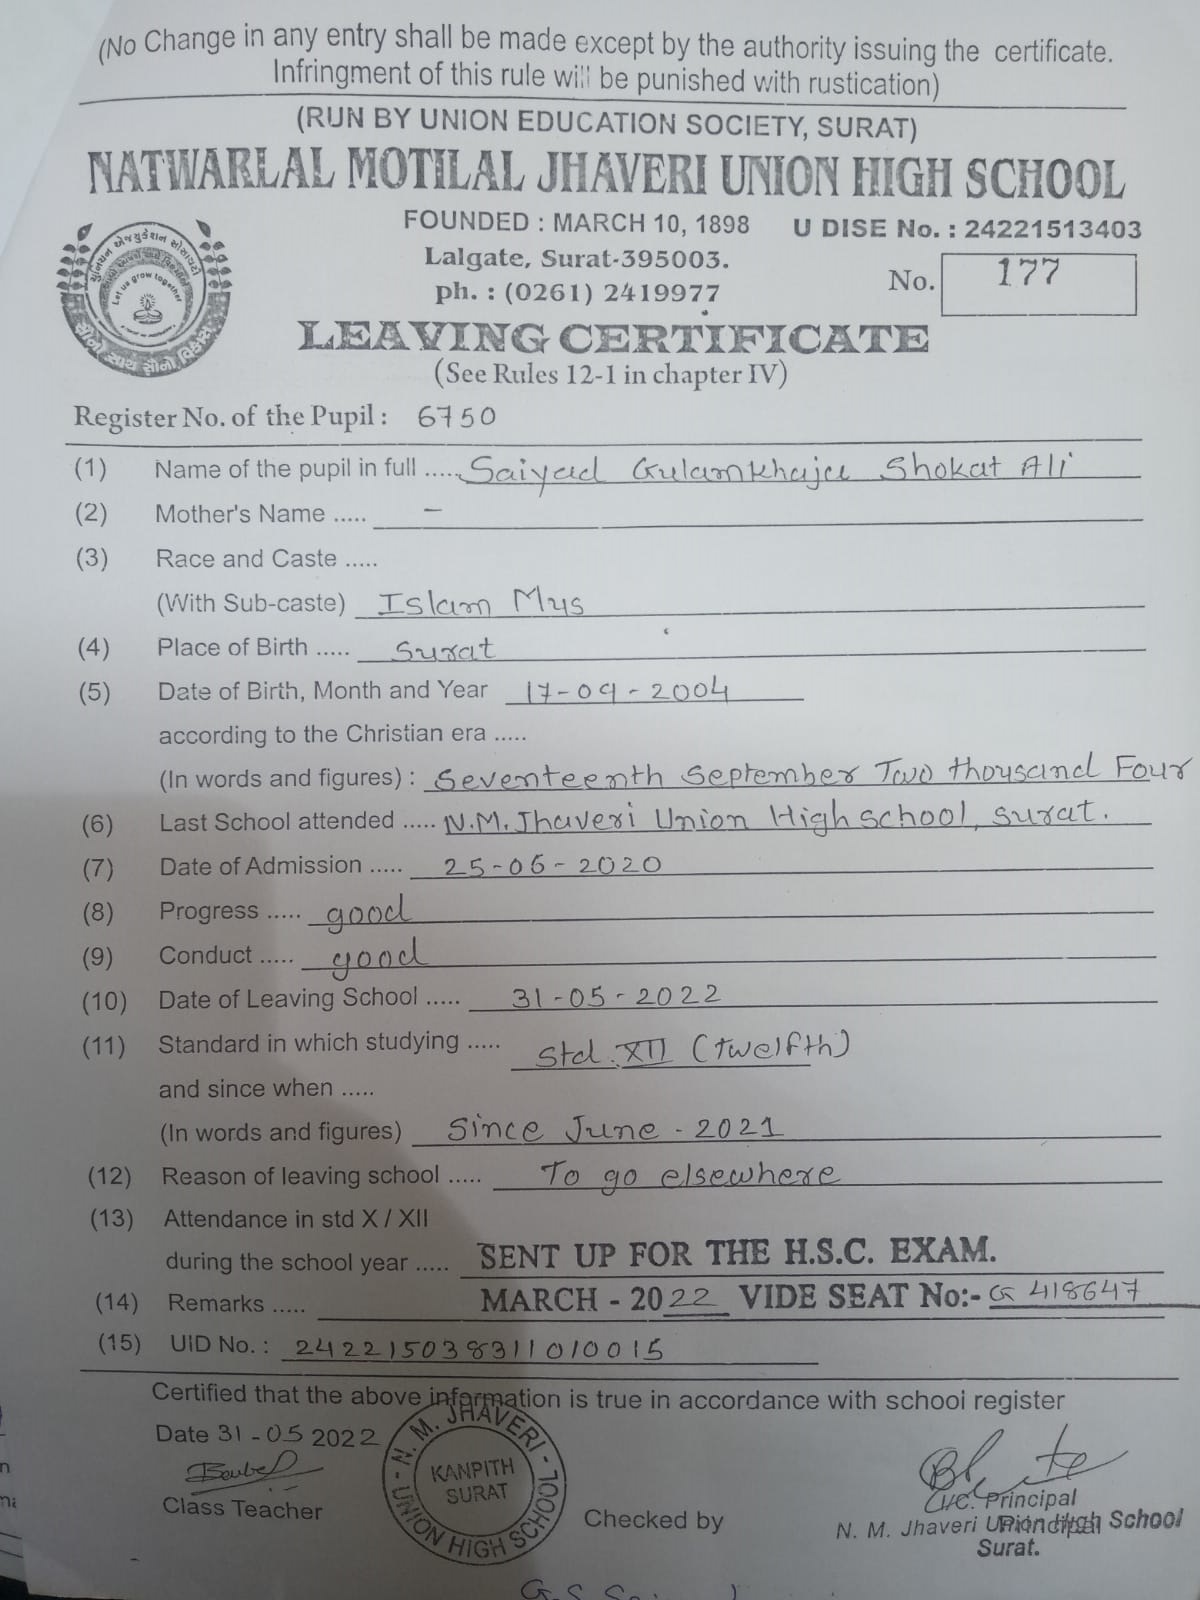 (No Change in any entry shall be made except by the authority issuing the certificate.
Infringment of this rule will be punished with rustication)
(RUN BY UNION EDUCATION SOCIETY, SURAT)
NATWARLAL MOTILAL JHAVERI UNION HIGH SCHOOL
FOUNDED : MARCH 10, 1898 U DISE No. : 24221513403
Lalgate, Surat-395003.
ph. : (0261) 2419977
No. 177
યુનિયન એજ્યુકેશન સોસાયટી
Let us grow together
સૌનો સાથ સૌનો વિકાસ
LEAVING CERTIFICATE
(See Rules 12-1 in chapter IV)
Register No. of the Pupil : 6750
(1) Name of the pupil in full ..... Saiyad Gulamkhaja Shokat Ali
(2) Mother's Name ..... –
(3) Race and Caste .....
(With Sub-caste) Islam Mus
(4) Place of Birth ..... Surat
(5) Date of Birth, Month and Year 17-09-2004
according to the Christian era .....
(In words and figures) : Seventeenth September Two thousand Four
(6) Last School attended ..... N.M. Jhaveri Union High school, surat.
(7) Date of Admission ..... 25-06-2020
(8) Progress ..... good
(9) Conduct ..... good
(10) Date of Leaving School ..... 31-05-2022
(11) Standard in which studying ..... Std. XII (twelfth)
and since when .....
(In words and figures) Since June - 2021
(12) Reason of leaving school ..... To go elsewhere
(13) Attendance in std X / XII
during the school year ..... SENT UP FOR THE H.S.C. EXAM.
(14) Remarks ..... MARCH - 2022 VIDE SEAT No:- G 418647
(15) UID No. : 242215038311010015
Certified that the above information is true in accordance with school register
Date 31-05 2022
N. M. JHAVERI UNION HIGH SCHOOL
KANPITH
SURAT
Class Teacher
Checked by
I/C. Principal
N. M. Jhaveri Union High School
Principal
Surat.